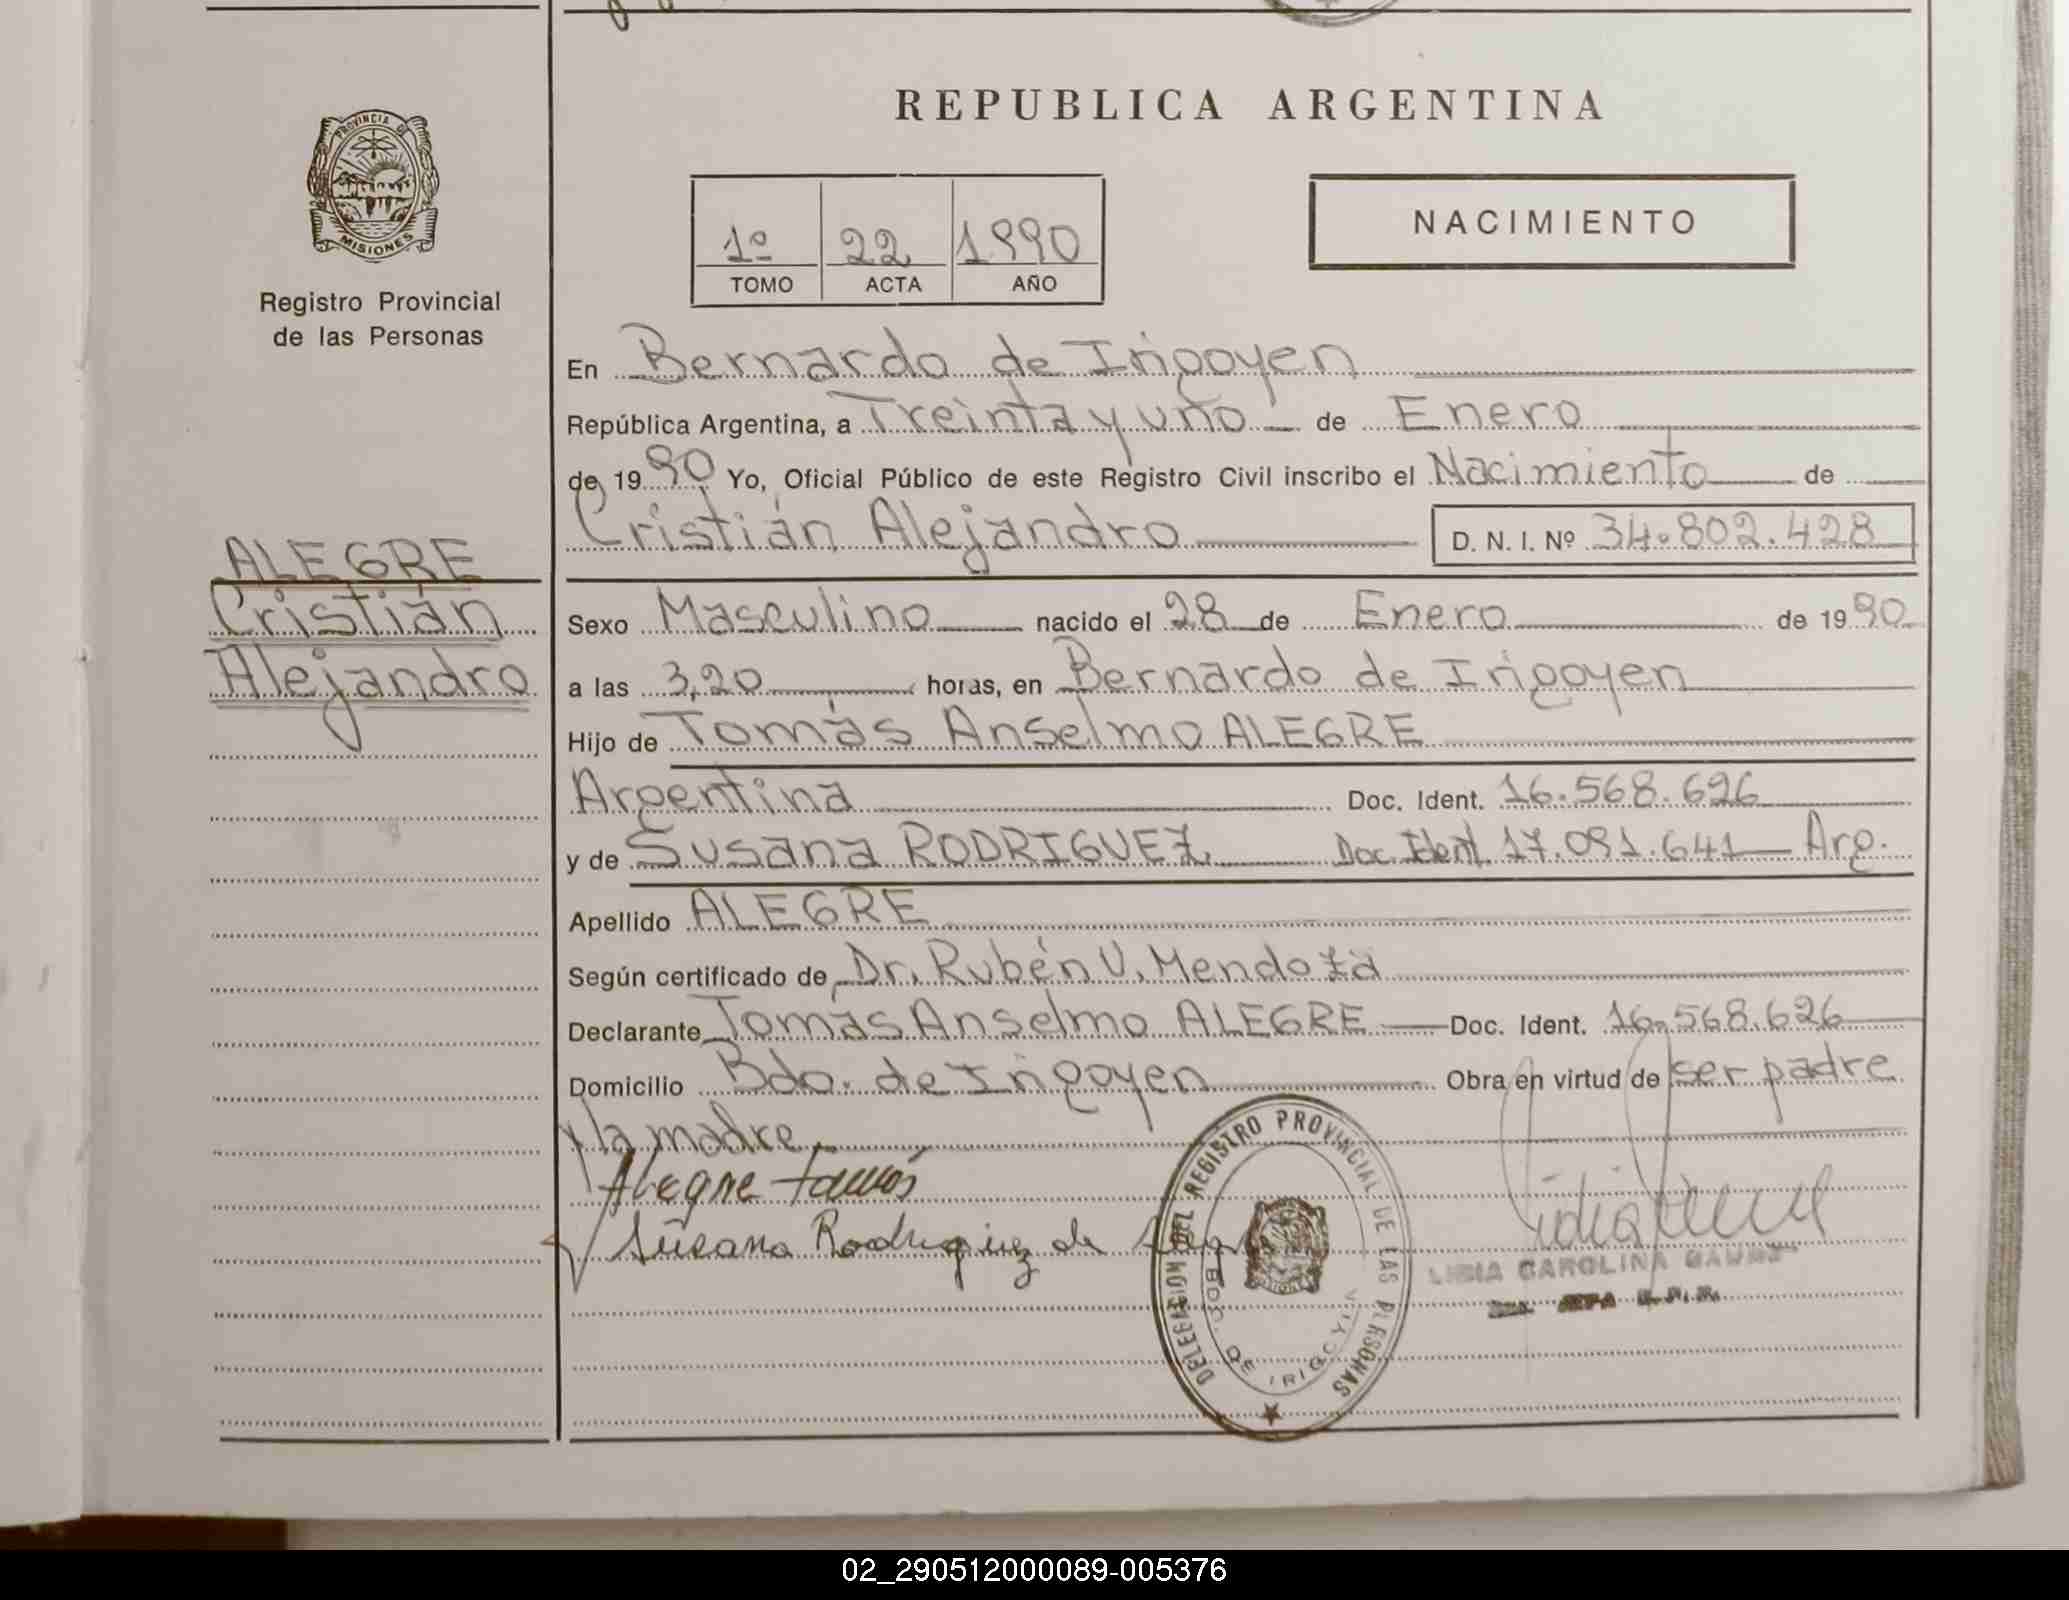 REPUBLICA ARGENTINA
PROVINCIA DE
MISIONES
Registro Provincial
de las Personas
1º 22 1990
TOMO ACTA AÑO
NACIMIENTO
En Bernardo de Irigoyen
República Argentina, a Treinta y uno de Enero
de 1990 Yo, Oficial Público de este Registro Civil inscribo el Nacimiento de
Cristián Alejandro D. N. I. Nº 34.802.428
ALEGRE
Cristián
Alejandro
Sexo Masculino nacido el 28 de Enero de 1990
a las 3,20 horas, en Bernardo de Irigoyen
Hijo de Tomás Anselmo ALEGRE
Argentina Doc. Ident. 16.568.626
y de Susana RODRIGUEZ Doc. Ident. 17.091.641 Arg.
Apellido ALEGRE
Según certificado de Dr. Rubén V. Mendoza
Declarante Tomás Anselmo ALEGRE Doc. Ident. 16.568.626
Domicilio Bdo. de Irigoyen Obra en virtud de ser padre
y la madre.
Alegre Tomás
Susana Rodriguez de
DELEGACION DEL REGISTRO PROVINCIAL DE LAS PERSONAS
BDO. DE IRIGOYEN
LIDIA CAROLINA
02_290512000089-005376